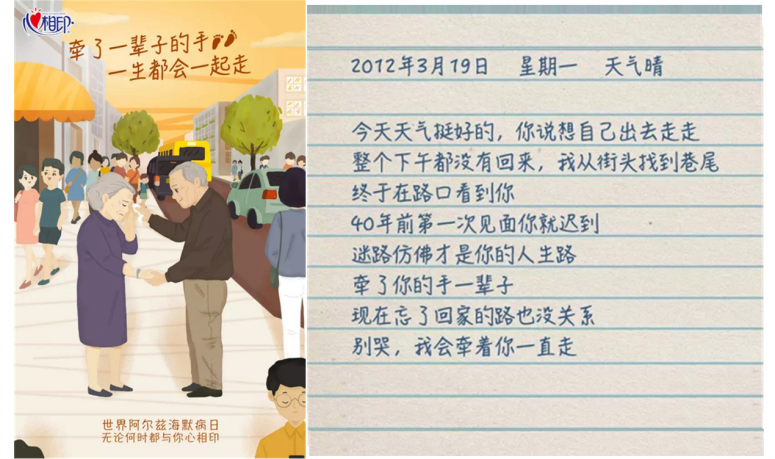 心相印
牵了一辈子的手
一生都会一起走
世界阿尔兹海默病日
无论何时都与你心相印
2012年3月19日 星期一 天气晴
今天天气挺好的，你说想自己出去走走
整个下午都没有回来，我从街头找到巷尾
终于在路口看到你
40年前第一次见面你就迟到
迷路仿佛才是你的人生路
牵了你的手一辈子
现在忘了回家的路也没关系
别哭，我会牵着你一直走